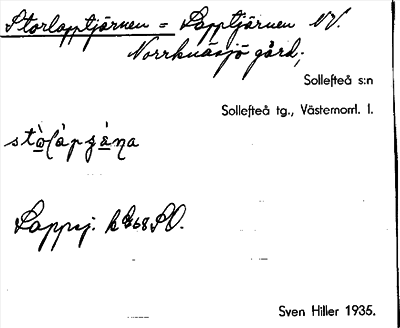 Storlapptjärnen = Lapptjärnen NV.
Norrknäsjö gård;
Sollefteå s:n
Sollefteå tg., Västernorrl. l.
Lappj.
Sven Hiller 1935.